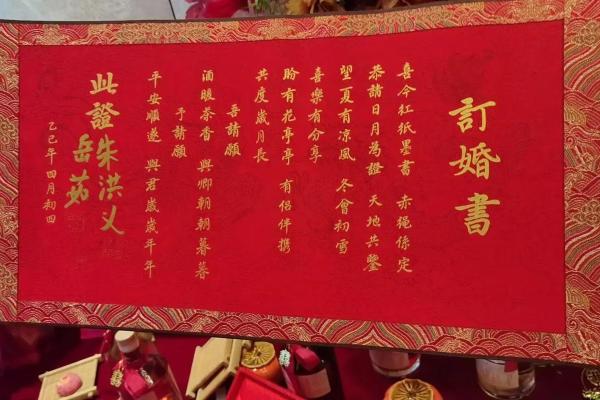 訂婚書
喜今紅紙墨書 赤繩係定
恭請日月為證 天地共鑒
望夏有涼風 冬會初雪
喜樂有分享
盼有花亭亭 有侶伴携
共度歲月長
吾請願
酒暖茶香 與卿朝朝暮暮
予請願
平安順遂 與君歲歲年年
此證 朱洪义
岳茹
乙巳年四月初四